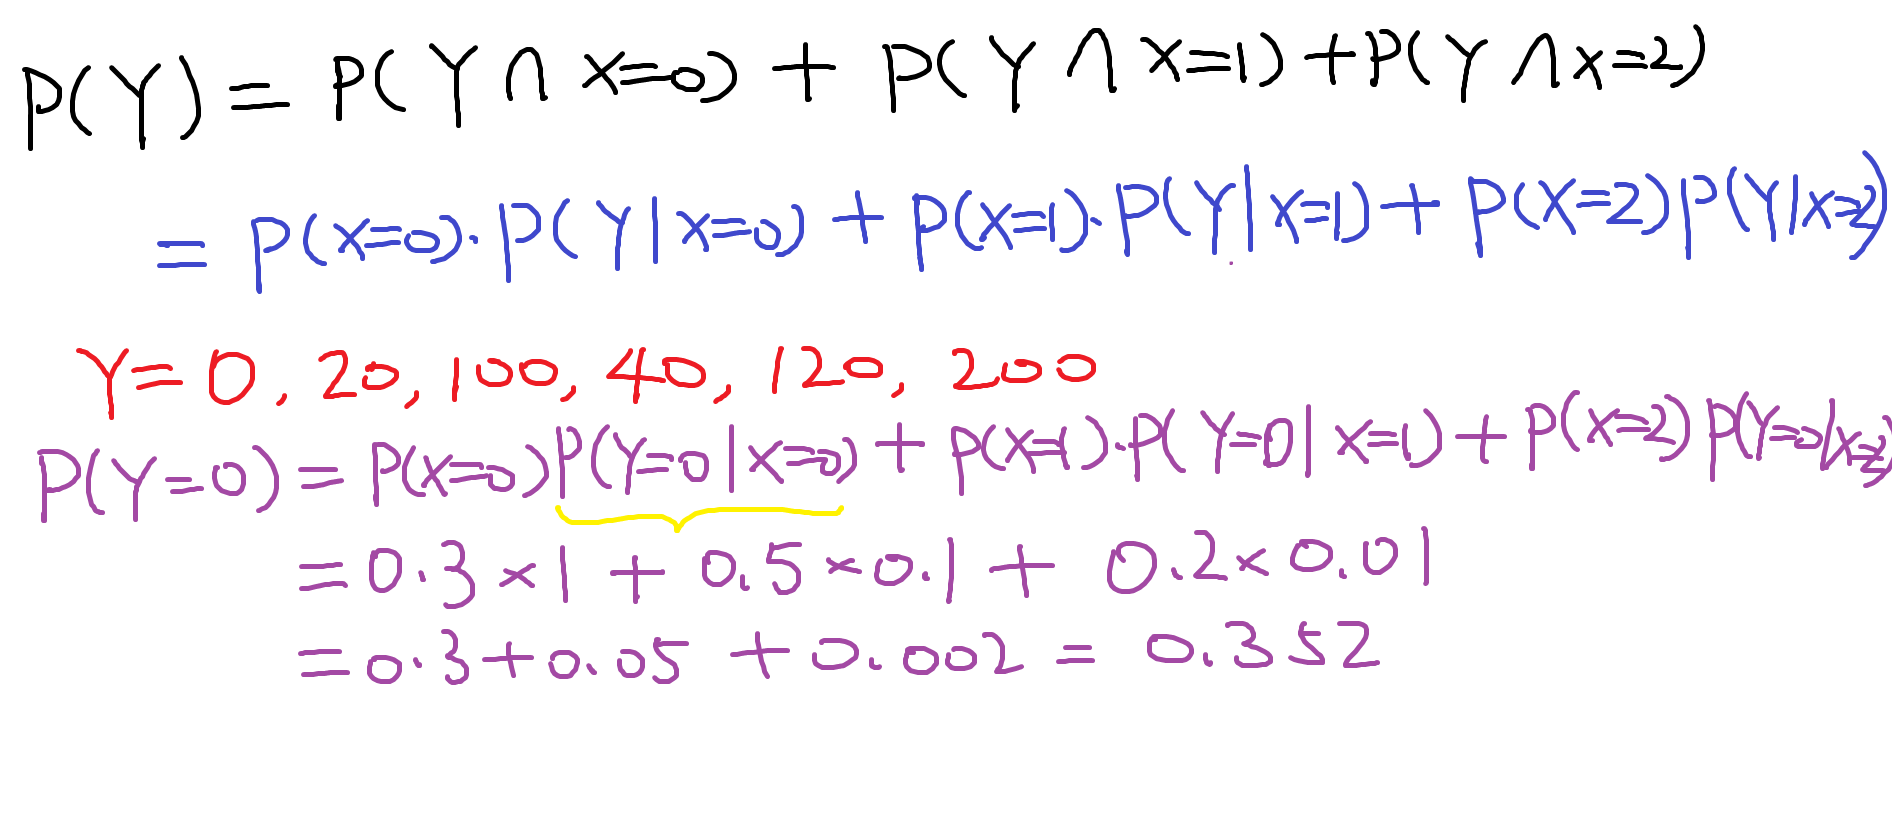 P(Y) = P(Y ∩ X=0) + P(Y ∩ X=1) + P(Y ∩ X=2)
= P(X=0) · P(Y|X=0) + P(X=1) · P(Y|X=1) + P(X=2) P(Y|X=2)
Y = 0, 20, 100, 40, 120, 200
P(Y=0) = P(X=0) P(Y=0|X=0) + P(X=1) · P(Y=0|X=1) + P(X=2) P(Y=0|X=2)
= 0.3 × 1 + 0.5 × 0.1 + 0.2 × 0.01
= 0.3 + 0.05 + 0.002 = 0.352